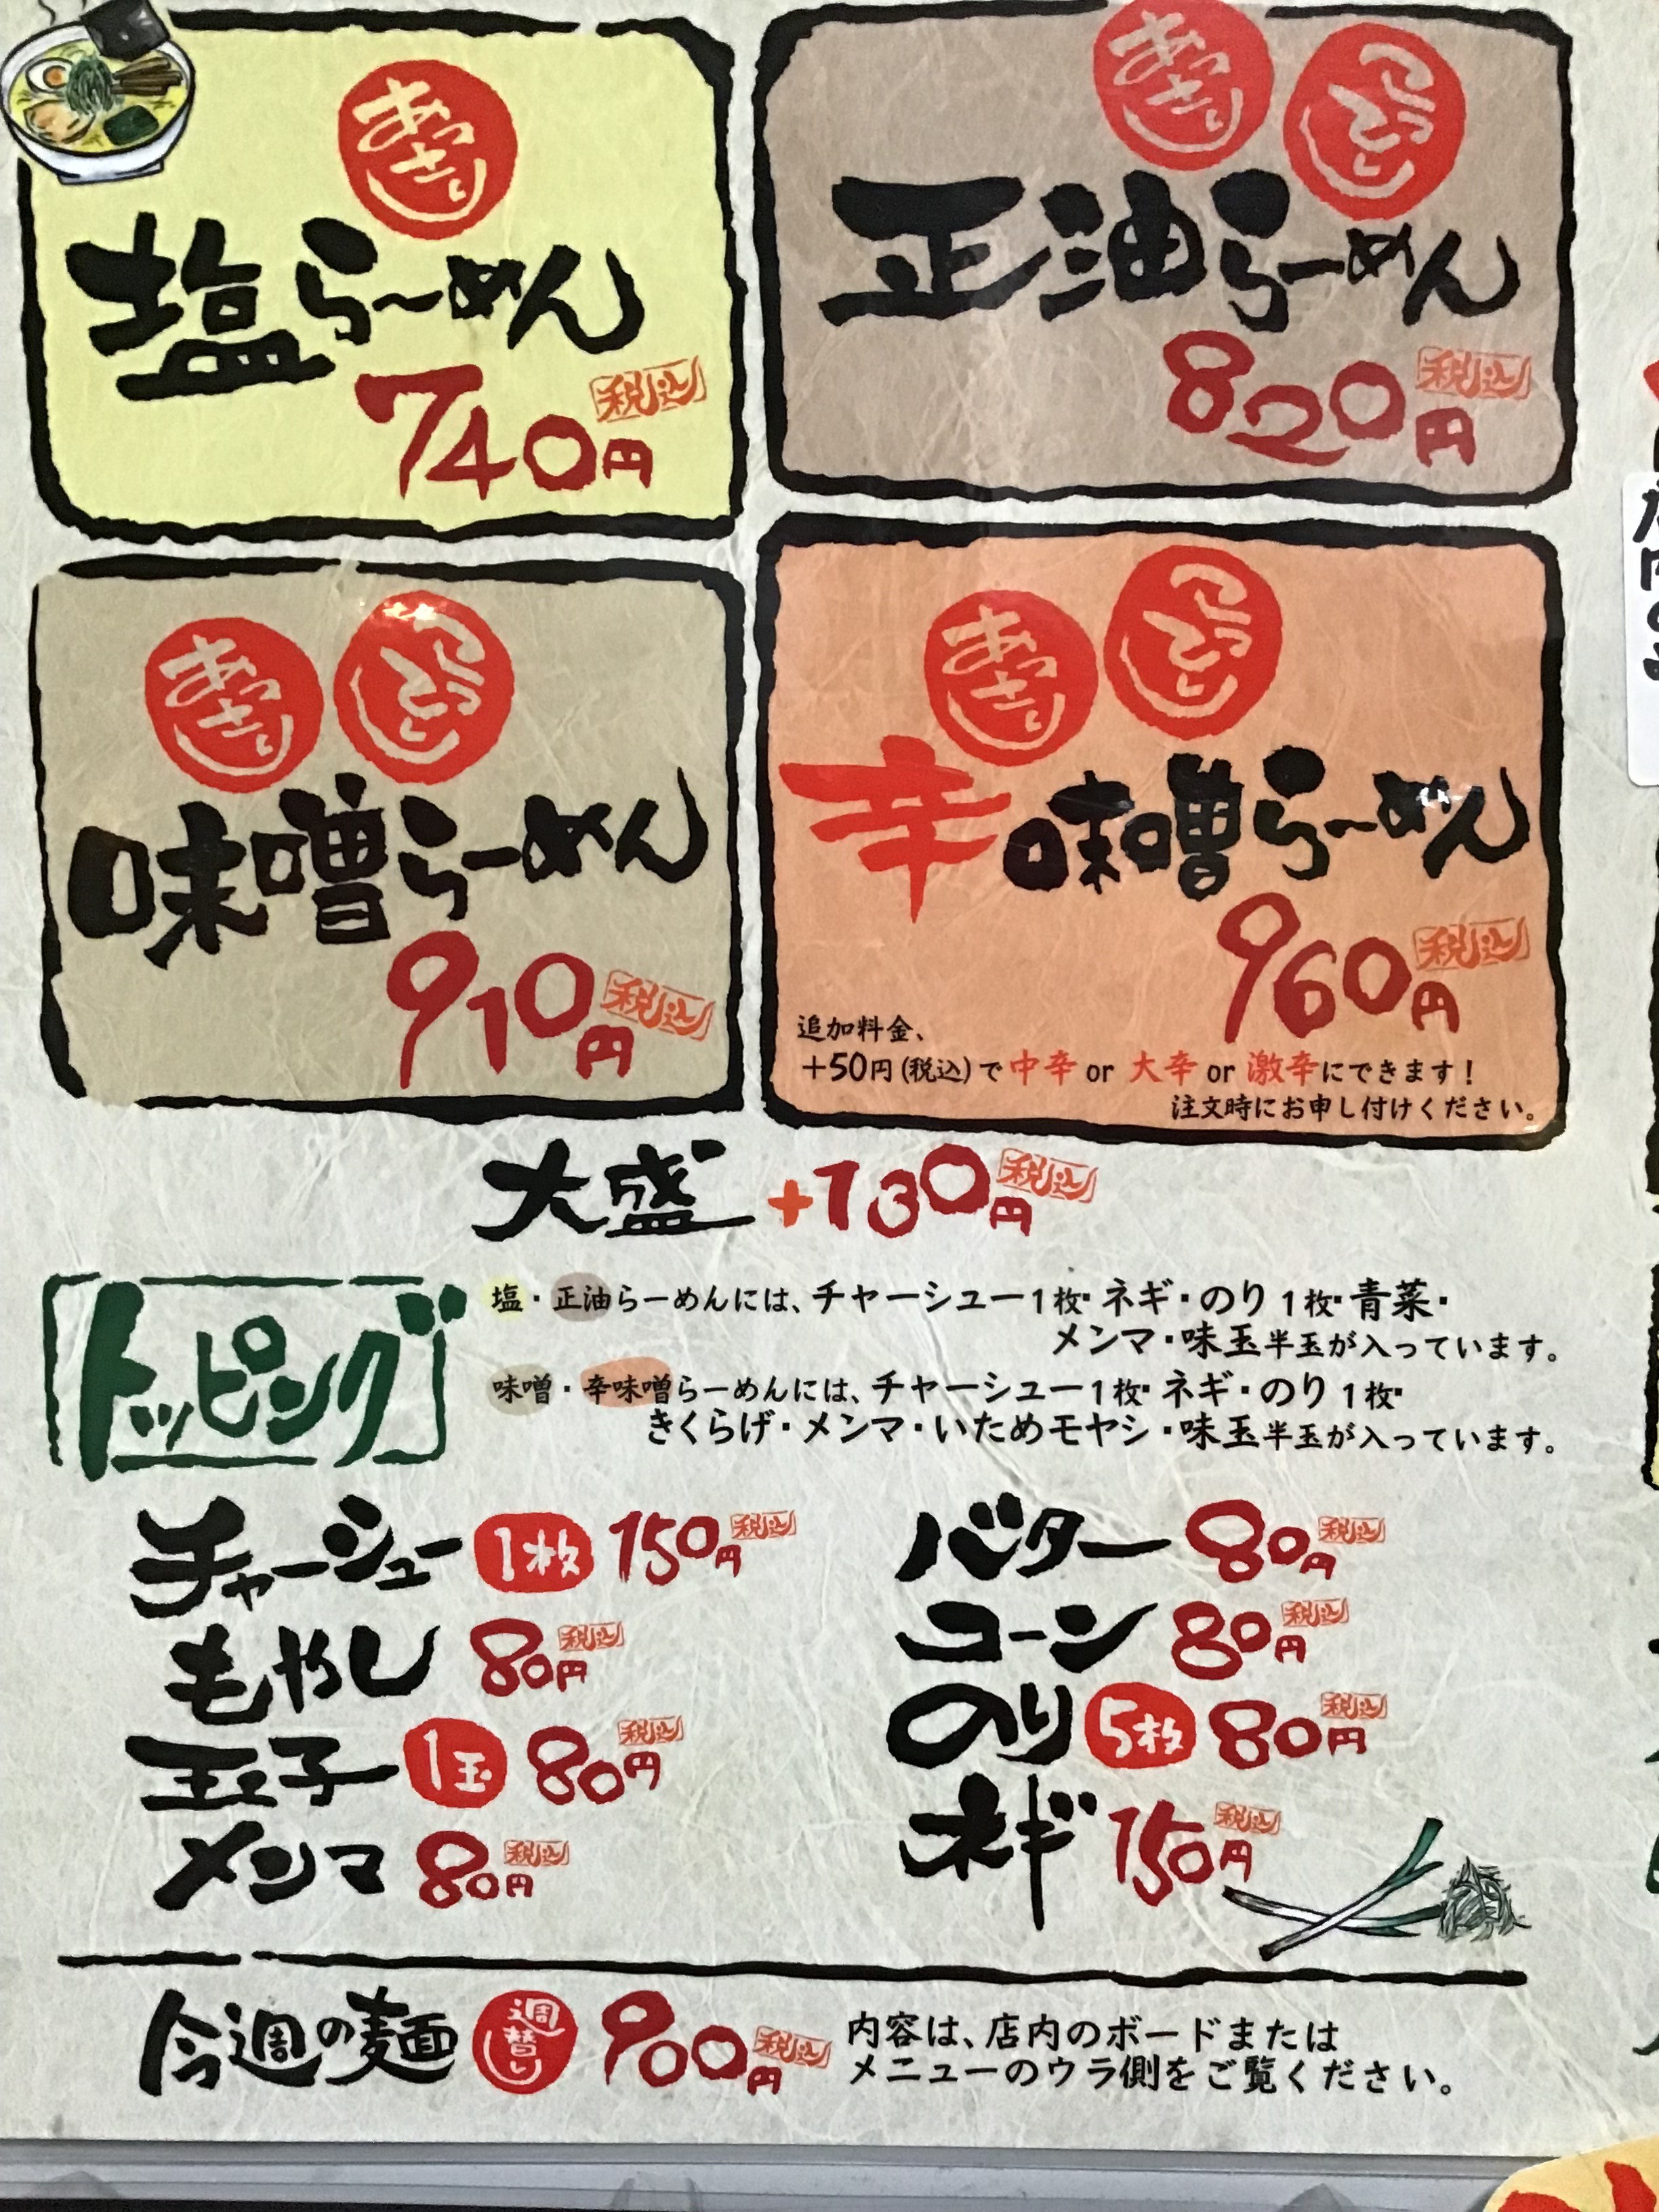 あっさり
塩らーめん
740円 税込
あっさり こってり
正油らーめん
820円 税込
あっさり こってり
味噌らーめん
910円 税込
あっさり こってり
辛味噌らーめん
960円 税込
追加料金、
+50円(税込)で中辛 or 大辛 or 激辛にできます!
注文時にお申し付けください。
大盛 +130円 税込
トッピング
塩・正油らーめんには、チャーシュー1枚・ネギ・のり1枚・青菜・
メンマ・味玉半玉が入っています。
味噌・辛味噌らーめんには、チャーシュー1枚・ネギ・のり1枚・
きくらげ・メンマ・いためモヤシ・味玉半玉が入っています。
チャーシュー 1枚 150円 税込
もやし 80円 税込
玉子 1玉 80円 税込
メンマ 80円 税込
バター 80円 税込
コーン 80円 税込
のり 5枚 80円 税込
ネギ 150円 税込
今週の麺 週替り 900円 税込
内容は、店内のボードまたは
メニューのウラ側をご覧ください。